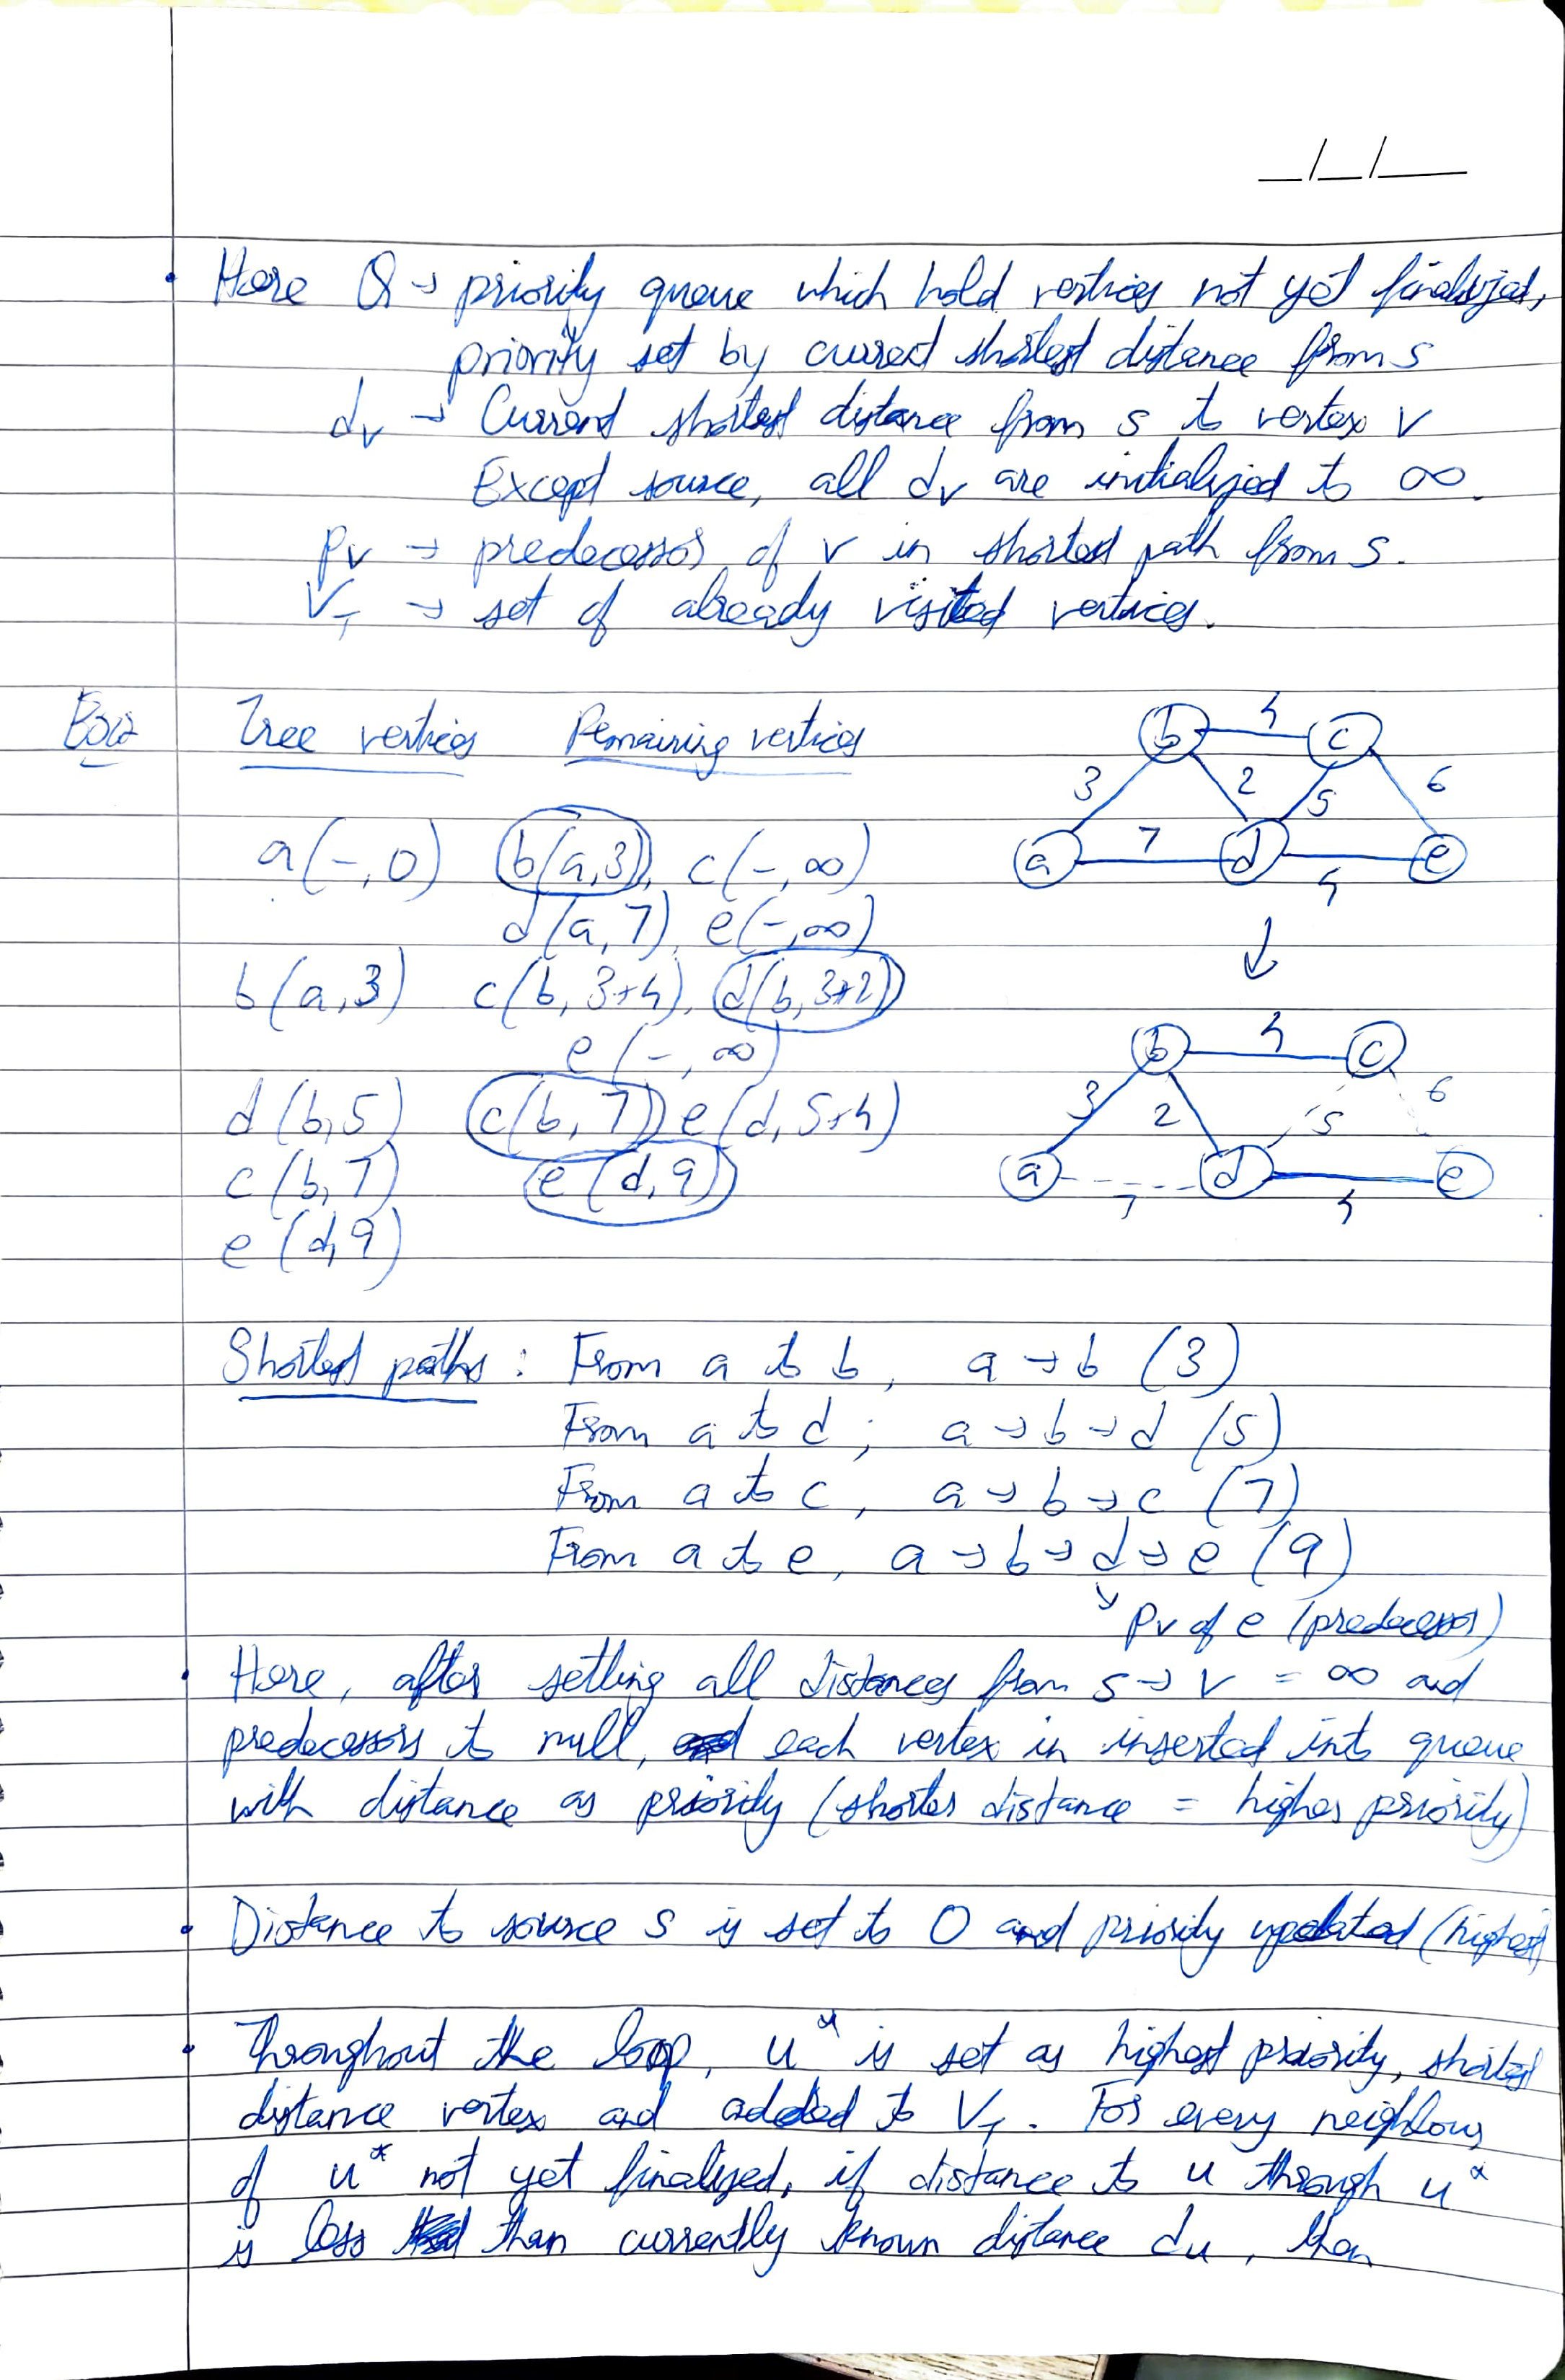 _/_/__
• Here Q → priority queue which hold vertices not yet finalized,
priority set by current shortest distance from s
dv → Current shortest distance from s to vertex v
Except source, all dv are initialized to ∞.
pv → predecessor of v in shortest path from s.
VT → set of already visited vertices.
Tree vertices Remaining vertices
b 4 c
3 2 5 6
a 7 d 4 e
a(-,0) b(a,3), c(-,∞)
d(a,7), e(-,∞)
↓
b(a,3) c(b,3+4), d(b,3+2)
e(-,∞)
b 4 c
3 2 5 6
a 7 d 4 e
d(b,5) c(b,7) e(d,5+4)
c(b,7) e(d,9)
e(d,9)
Shortest paths : From a to b, a → b (3)
From a to d, a → b → d (5)
From a to c, a → b → c (7)
From a to e, a → b → d → e (9)
↘ pv of e (predecessor)
• Here, after setting all distances from s → v = ∞ and
predecessors to null, each vertex in inserted into queue
with distance as priority (shorter distance = higher priority)
• Distance to source s is set to 0 and priority updated (highest)
• Throughout the loop, u* is set as highest priority, shortest
distance vertex and added to VT. For every neighbour
of u* not yet finalized, if distance to u through u*
is less than currently known distance du, then